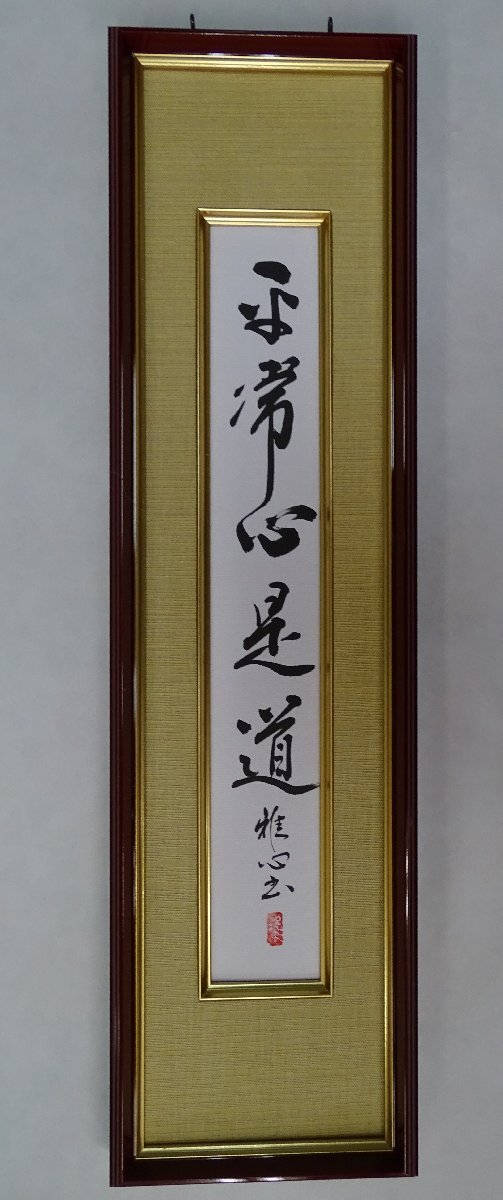 平常心是道
雅心書